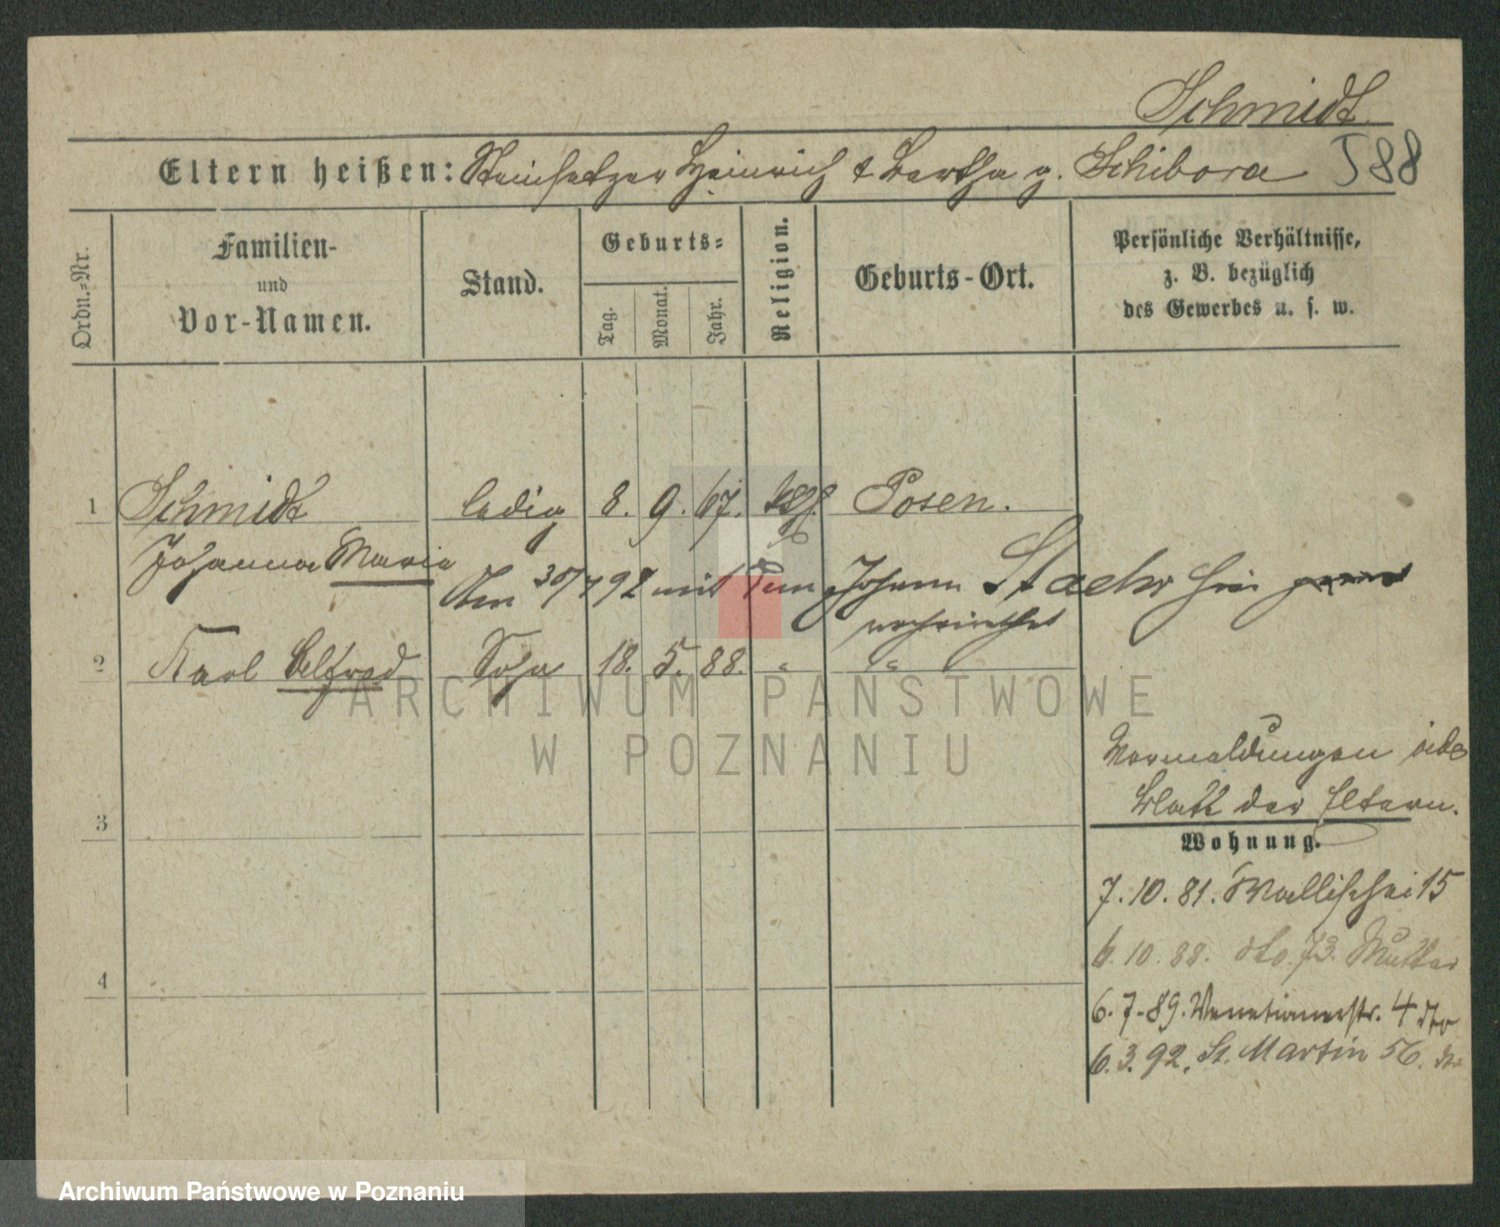 Schmidt
Eltern heißen: Steinsetzer Heinrich & Bertha g. Schibora 588
Ordn.-Nr.
Familien-
und
Vor-Namen.
Stand.
Geburts-
Tag.
Monat.
Jahr.
Religion.
Geburts-Ort.
Persönliche Verhältnisse,
z. B. bezüglich
des Gewerbes u. s. w.
1 Schmidt ledig 8. 9. 67. Posen.
Johanna Maria
Am 30/7 92 mit dem Johann Staehr hier
verheirathet
2 Karl Alfred Sohn 18. 5. 88. " "
ARCHIWUM PAŃSTWOWE
W POZNANIU
Vermeldungen vide
Blatt der Eltern.
3
Wohnung.
7. 10. 81. Wallischei 15
6. 10. 88. dto. 73. Mutter
4
6. 7. 89. Venetianerstr. 4 dto
6. 3. 92. St. Martin 56. dto
Archiwum Państwowe w Poznaniu